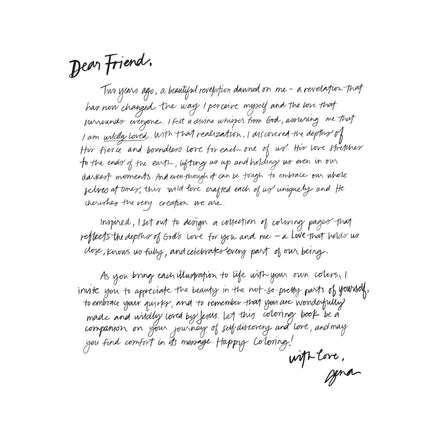 Dear Friend,
Two years ago, a beautiful revelation dawned on me – a revelation that
has now changed the way I perceive myself and the love that
surrounds everyone. I felt a divine whisper from God, assuring me that
I am wildly loved. With that realization, I discovered the depths of
His fierce and boundless love for each one of us. His love stretches
to the ends of the earth, lifting us up and holding us even in our
darkest moments. And even though it can be tough to embrace our whole
selves at times, this wild love crafted each of us uniquely and He
cherishes the very creation we are.
Inspired, I set out to design a collection of coloring pages that
reflects the depths of God's love for you and me – a love that holds us
close, knows us fully, and celebrates every part of our being.
As you bring each illustration to life with your own colors, I
invite you to appreciate the beauty in the not-so-pretty parts of yourself,
to embrace your quirks, and to remember that you are wonderfully
made and wildly loved by Jesus. Let this coloring book be a
companion on your journey of self-discovery and love, and may
you find comfort in its message. Happy Coloring!
With love,